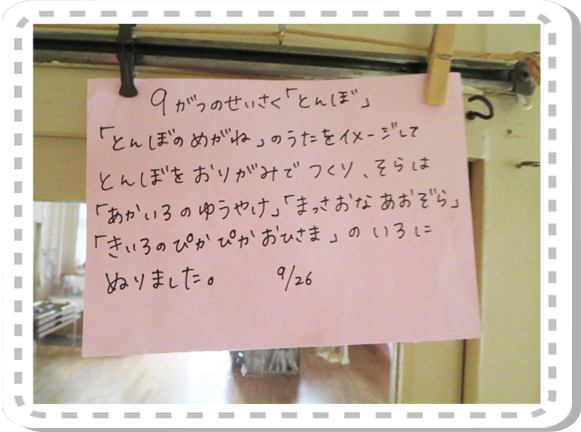 9がつのせいさく「とんぼ」
「とんぼのめがね」のうたをイメージして
とんぼをおりがみでつくり、そらは
「あかいろのゆうやけ」「まっさおなあおぞら」
「きいろのぴかぴかおひさま」のいろに
ぬりました。 9/26